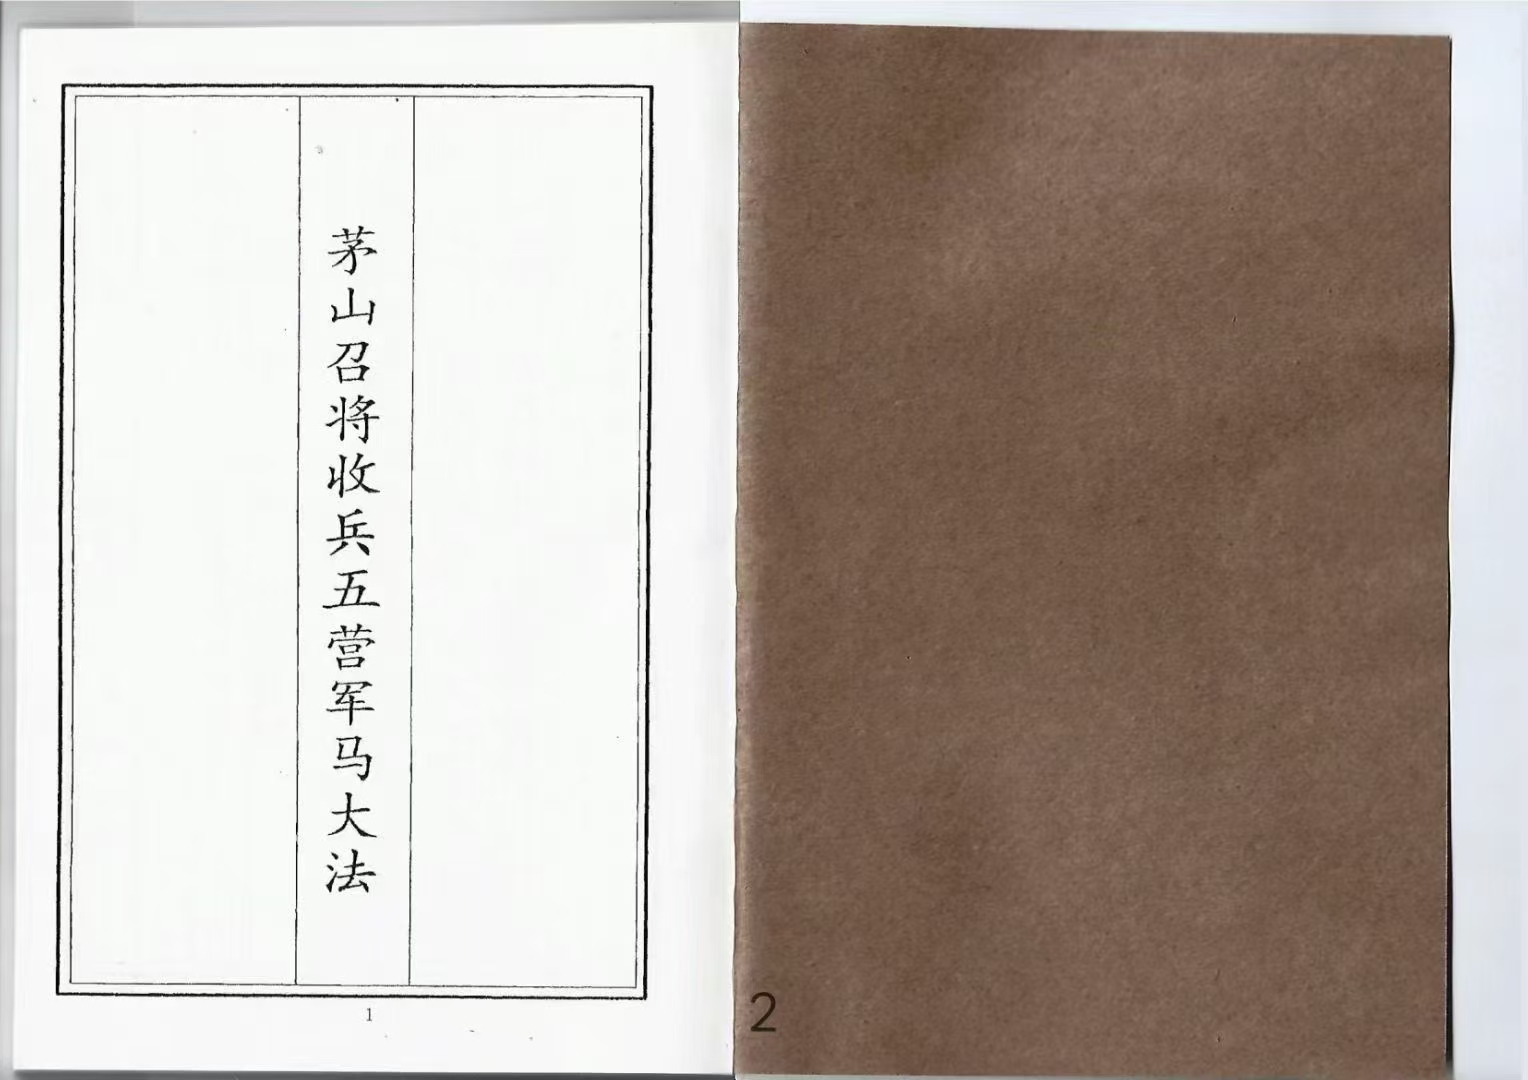 茅山召将收兵五营军马大法
1
2